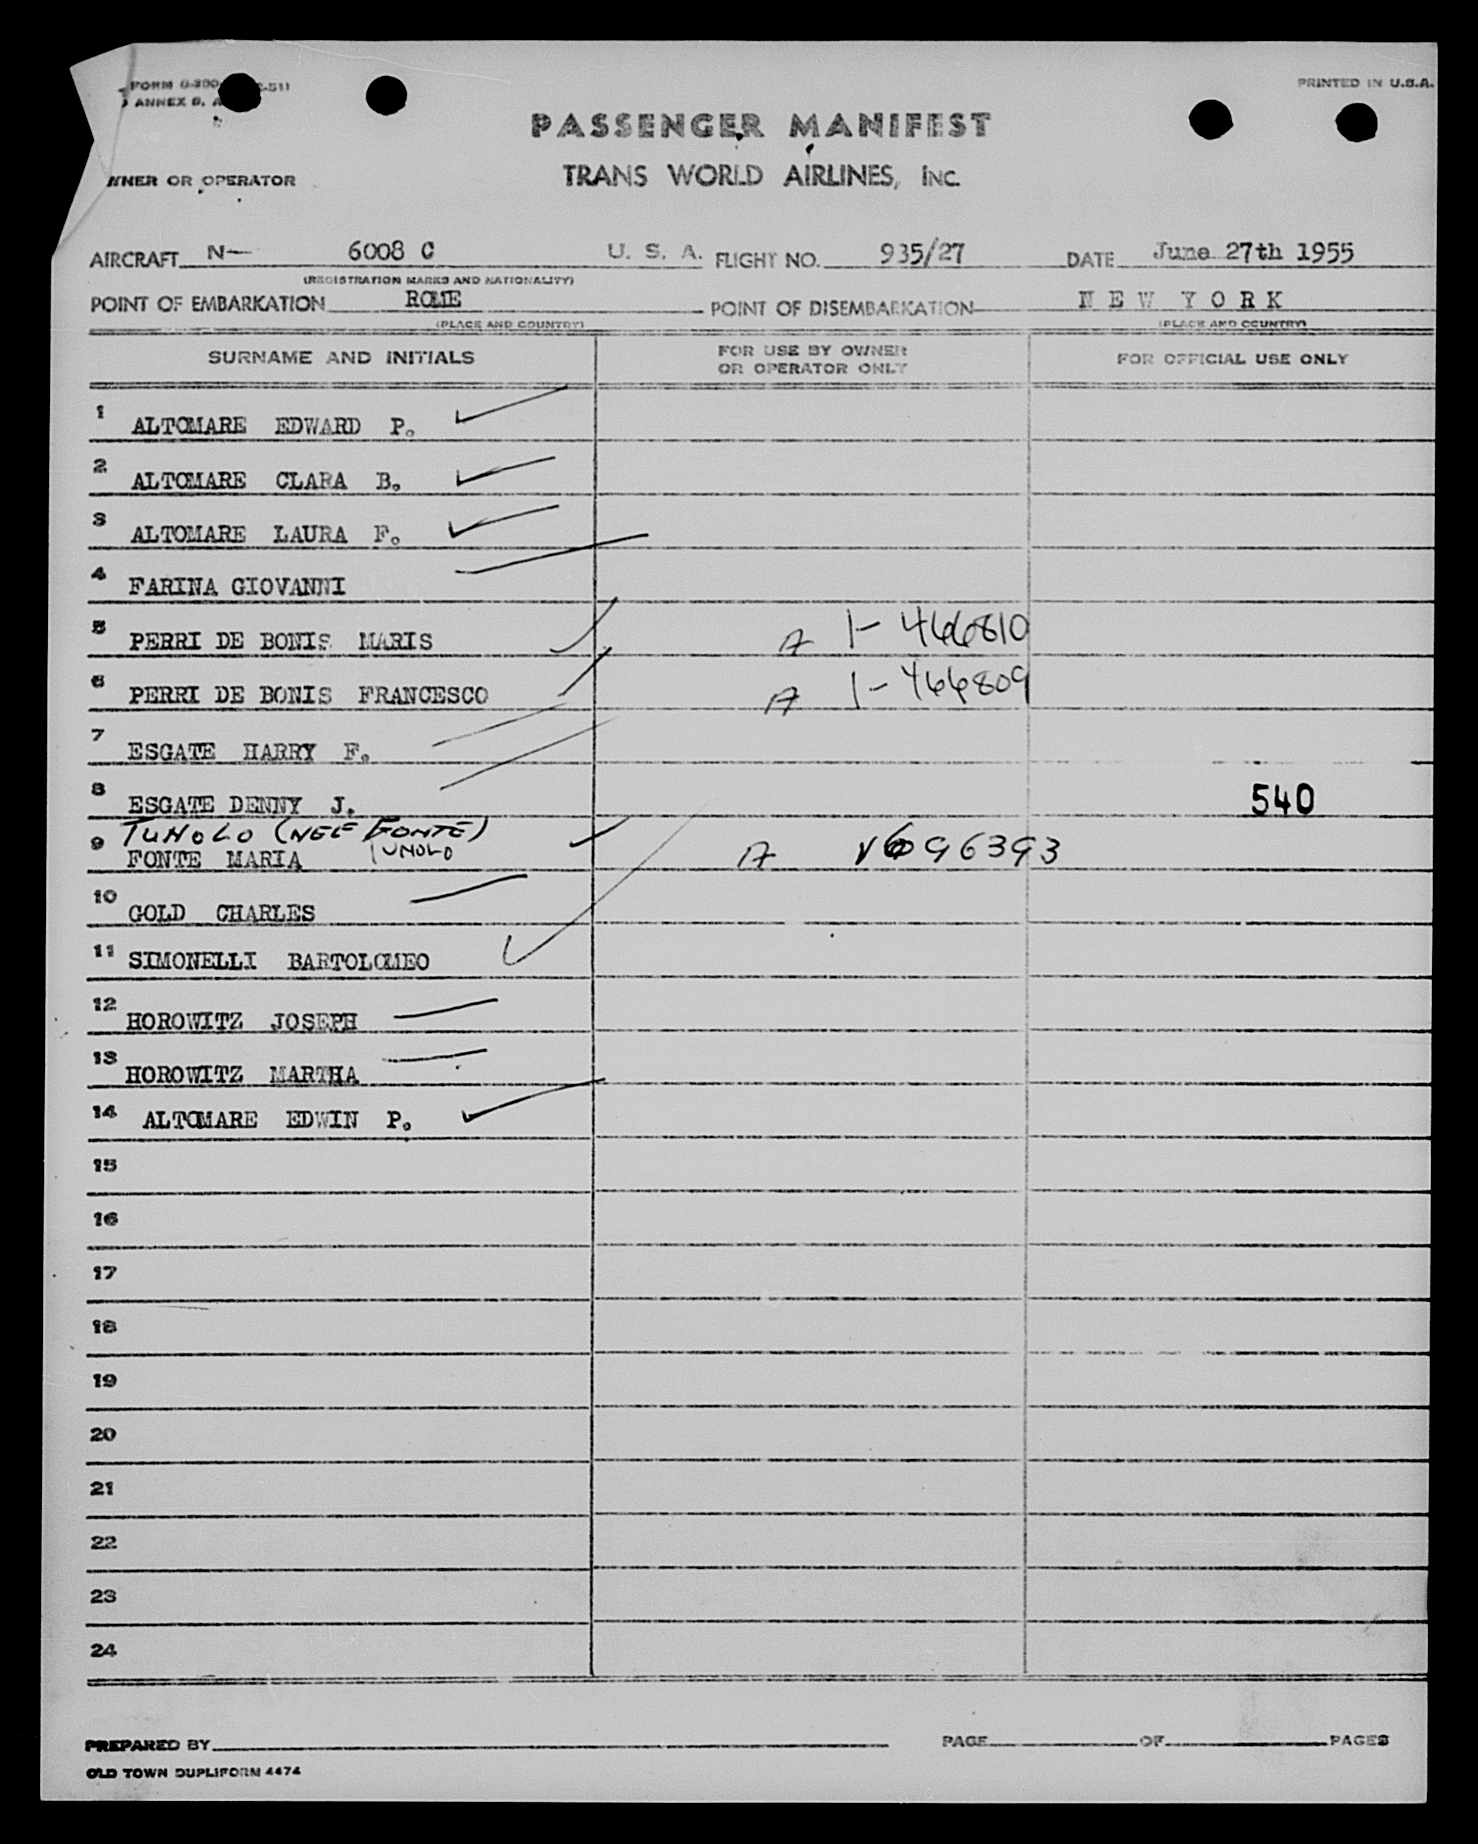 FORM G-380
ANNEX 9, A
PRINTED IN U.S.A.
PASSENGER MANIFEST
OWNER OR OPERATOR TRANS WORLD AIRLINES, INC.
AIRCRAFT N— 6008 C U. S. A. FLIGHT NO. 935/27 DATE June 27th 1955
(REGISTRATION MARKS AND NATIONALITY)
POINT OF EMBARKATION ROME POINT OF DISEMBARKATION N E W Y O R K
(PLACE AND COUNTRY) (PLACE AND COUNTRY)
SURNAME AND INITIALS FOR USE BY OWNER OR OPERATOR ONLY FOR OFFICIAL USE ONLY
1 ALTOMARE EDWARD P.
2 ALTOMARE CLARA B.
3 ALTOMARE LAURA F.
4 FARINA GIOVANNI
5 PERRI DE BONIS MARIS A 1-466810
6 PERRI DE BONIS FRANCESCO A 1-466809
7 ESGATE HARRY F.
8 ESGATE DENNY J. 540
TUNOLO (NEE FONTE)
9 FONTE MARIA TUNOLO A V6096393
10 GOLD CHARLES
11 SIMONELLI BARTOLOMEO
12 HOROWITZ JOSEPH
13 HOROWITZ MARTHA
14 ALTOMARE EDWIN P.
15
16
17
18
19
20
21
22
23
24
PREPARED BY PAGE OF PAGES
OLD TOWN DUPLIFORM 4474